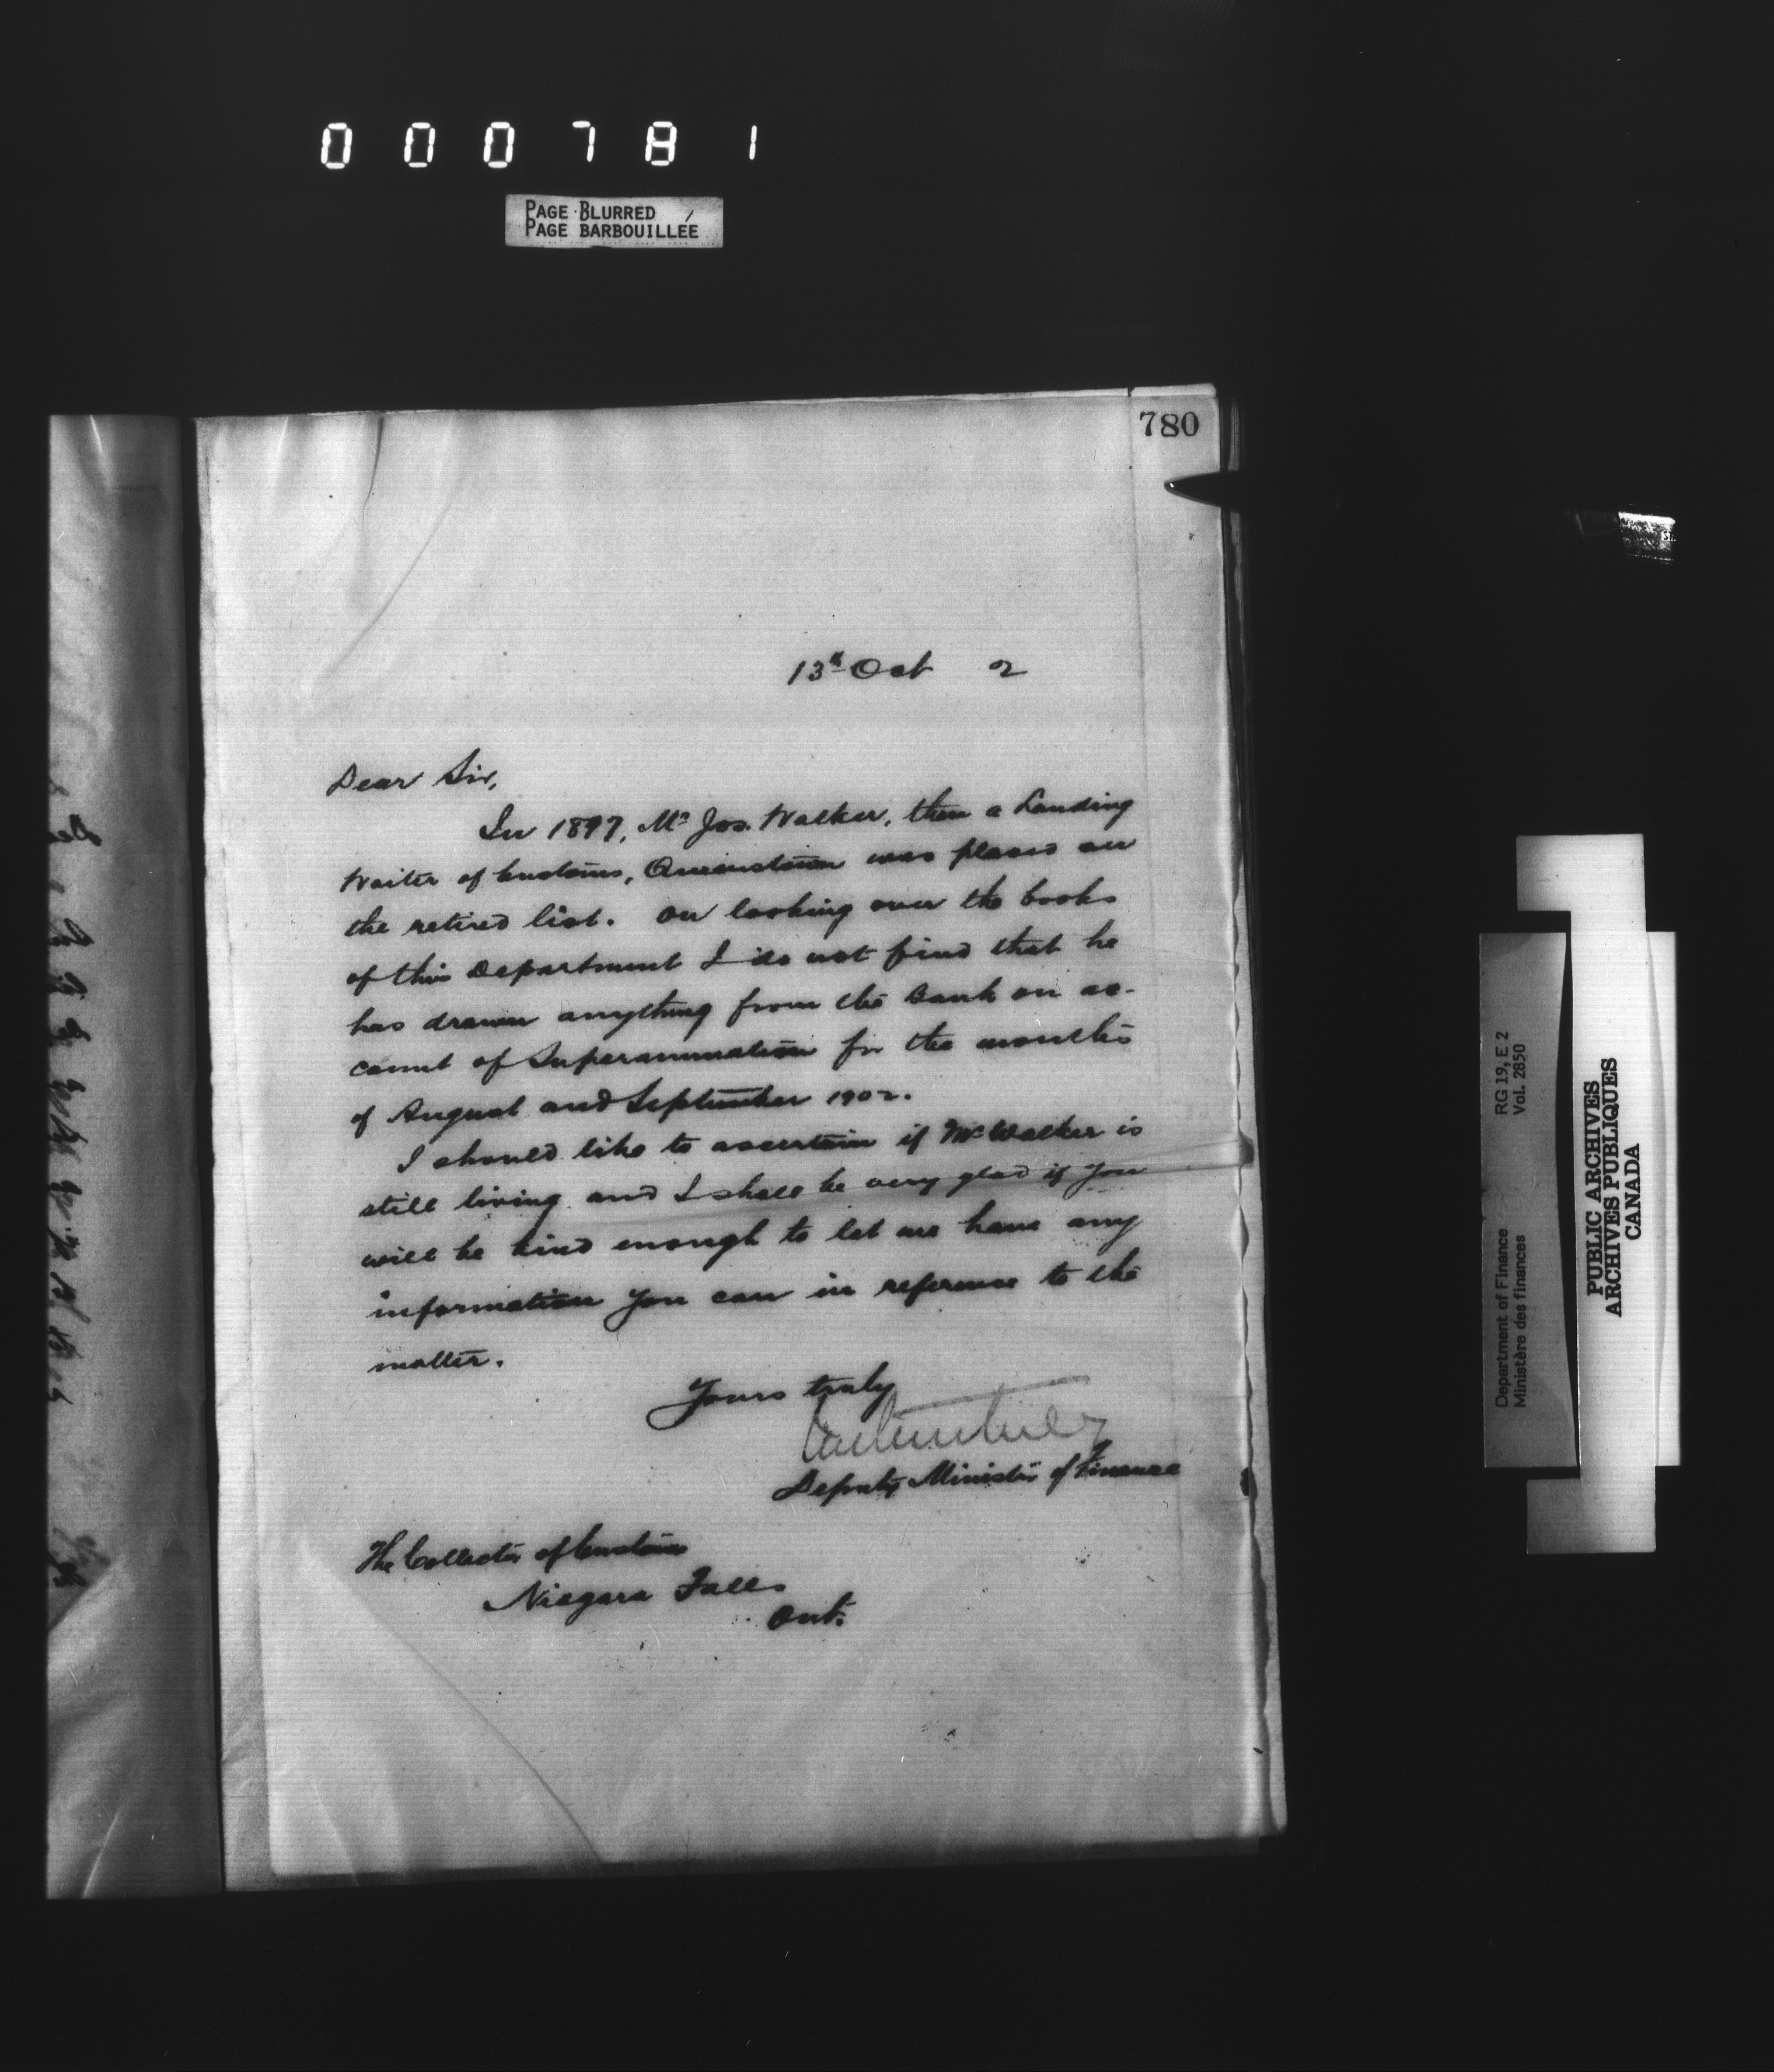 000781
PAGE BLURRED
PAGE BARBOUILLÉE
780
13th Oct 2
Dear Sir,
In 1897, Mr Jos. Walker, then a Landing
Waiter of Customs, Queenston was placed on
the retired list. On looking over the books
of this Department I do not find that he
has drawn anything from the Bank on ac-
count of Superannuation for the months
of August and September 1902.
I should like to ascertain if Mr Walker is
still living and I shall be very glad if you
will be kind enough to let me have any
information you can in reference to the
matter.
Yours truly
Deputy Minister of Finance
The Collector of Customs
Niagara Falls
Ont.
Department of Finance RG 19, E 2
Ministère des finances Vol. 2850
PUBLIC ARCHIVES
ARCHIVES PUBLIQUES
CANADA